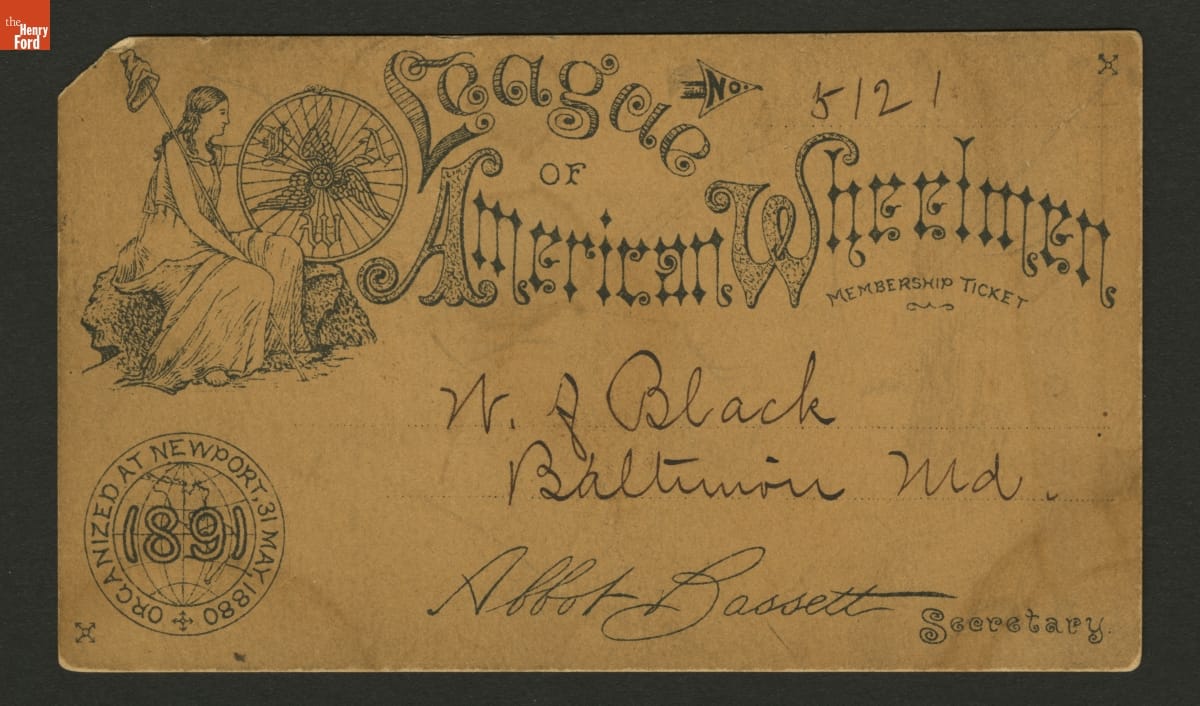 the
Henry
Ford
League
No.
5121
OF
American Wheelmen
MEMBERSHIP TICKET
L A W
W. J Black
Baltimore Md.
ORGANIZED AT NEWPORT, 31 MAY, 1880
1891
Abbot Bassett
Secretary.